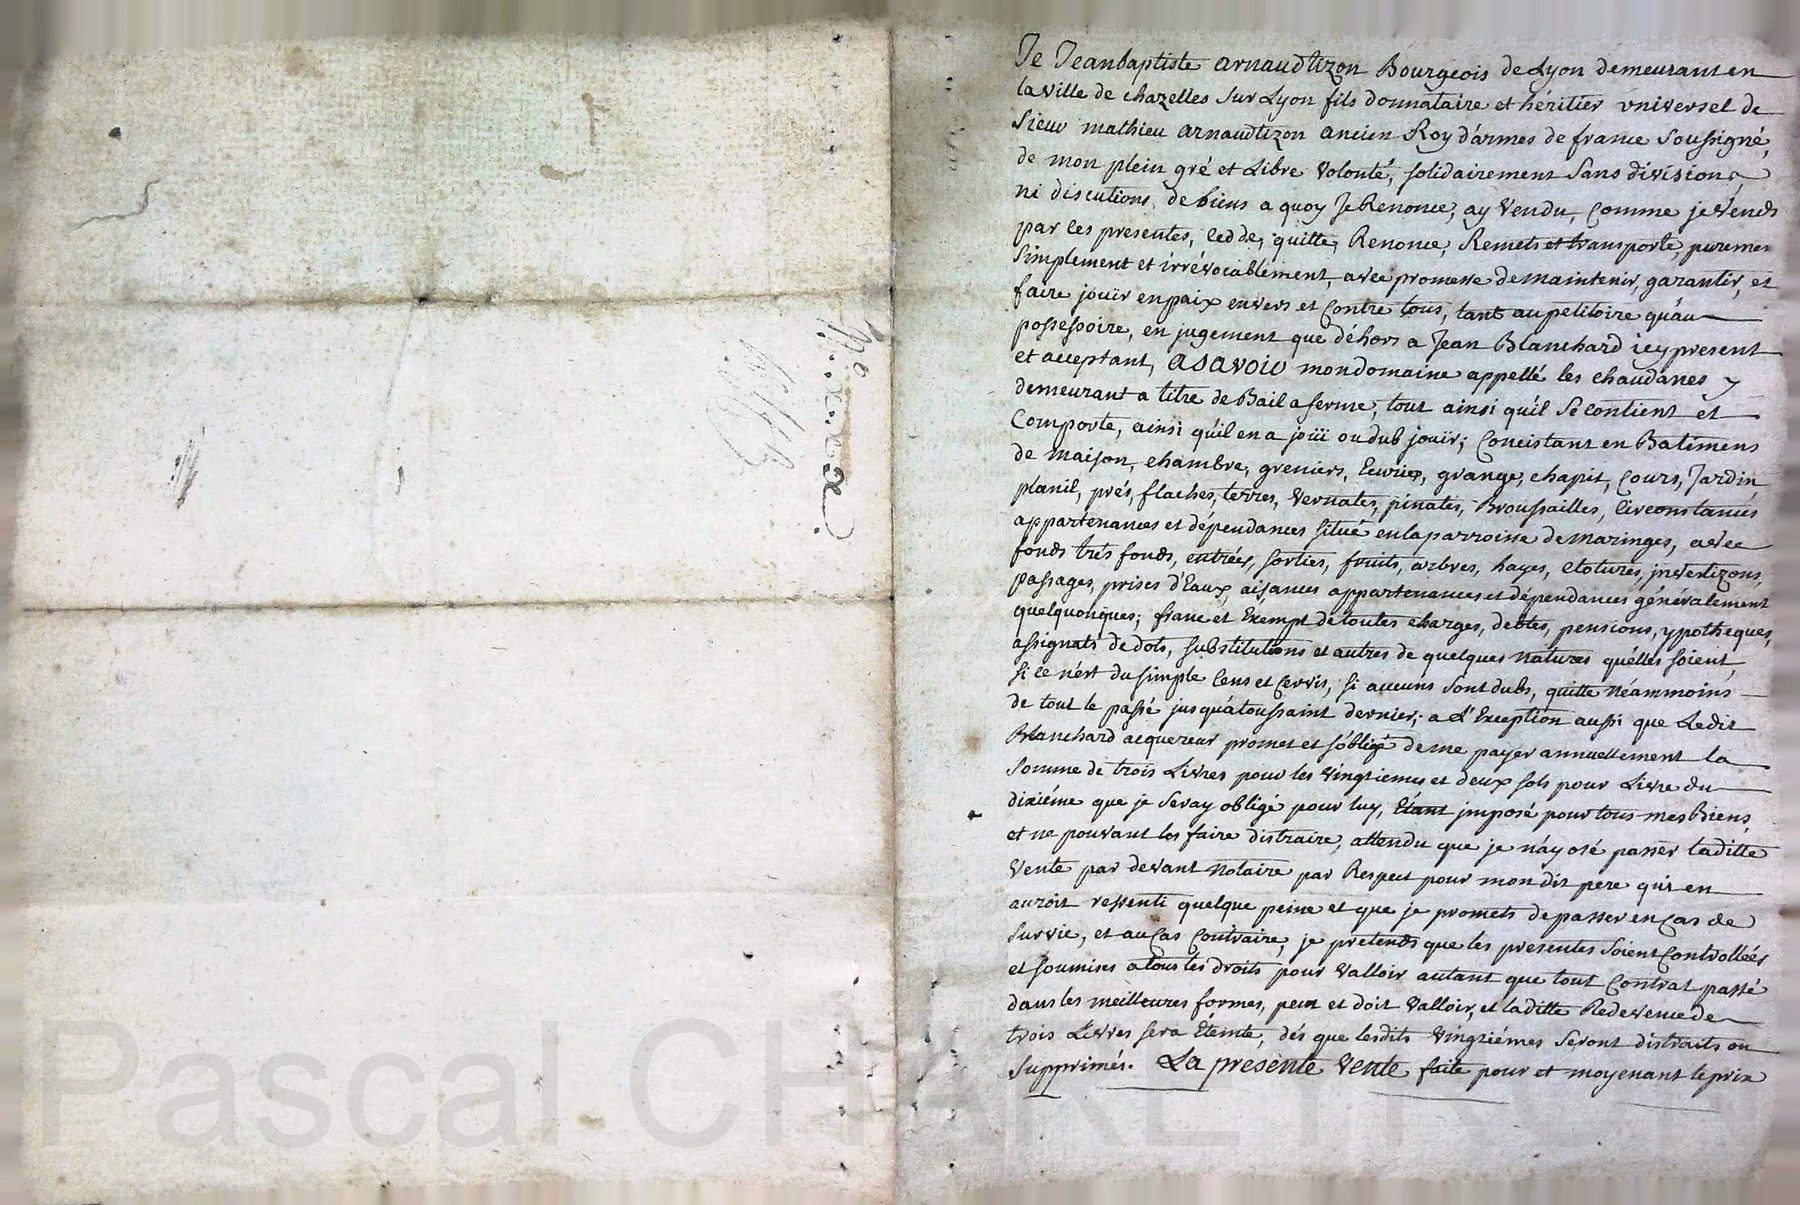 Je Jeanbaptiste arnaudtizon Bourgeois de Lyon demeurant en
la ville de chazelles sur Lyon fils donnataire et héritier universel de
Sieur mathieu arnaudtizon ancien Roy d'armes de france soussigné,
de mon plein gré et Libre volonté, solidairement sans division,
ni discutions de biens a quoy Je Renonce, ay vendu, Comme je vends
par les presentes, cedde, quitte, Renonce, Remets et transporte, puremen
simplement et irrévocablement, avec promesse de maintenir, garantir, et
faire jouir en paix envers et Contre tous, tant au petitoire qu'au
possessoire, en jugement que déhors a Jean Blanchard icy present
et acceptant, ASAVOIR mon domaine appellé les chaudanes y
demeurant a titre de Bail a ferme, tout ainsi qu'il se contient et
Comporte, ainsi qu'il en a joüi ou dub jouir; Concistant en Batimens
de maison, chambre, greniers, Ecurie, grange, chapit, Cours, Jardin
planil, prés, flaches, terres, vernates, pinates, Broussailles, Circonstances
appartenances et dépendances situé en la parroisse de maringes, avec
fonds trés fonds, entrées, sorties, fruits, arbres, hayes, clotures, investizons,
passages, prises d'Eaux, aisances appartenances et dépendances généralement
quelquonques; franc et Exempt de toutes charges, debtes, pensions, ypotheques,
assignats de dots, substitutions et autres de quelques natures qu'elles soient,
si ce n'est du simple Cens et servis, si aucuns sont dubs, quitte néammoins
de tout le passé jusqu'a toussaint dernier; a L'Exception aussi que Ledit
Blanchard acquereur promet et s'oblige de me payer annuellement la
somme de trois Livres pour les vingtiemes et deux sols pour Livre du
dixiéme que je seray obligé pour luy, Etant imposé pour tous mes Biens,
et ne pouvant les faire distraire, attendu que je n'ay osé passer laditte
vente par devant Notaire par Respect pour mon dit pere qui en
auroit ressenti quelque peine et que je promets de passer en Cas de
survie, et au Cas Contraire, je pretends que les presentes soient Controllées
et soumises a tous les droits pour valloir autant que tout Contrat passé
dans les meilleures formes, peut et doit valloir, et laditte Redevence de
trois Livres sera Eteinte, dés que lesdits vingtiémes seront distraits ou
supprimés. La presente vente faite pour et moyenant le prix
Pascal